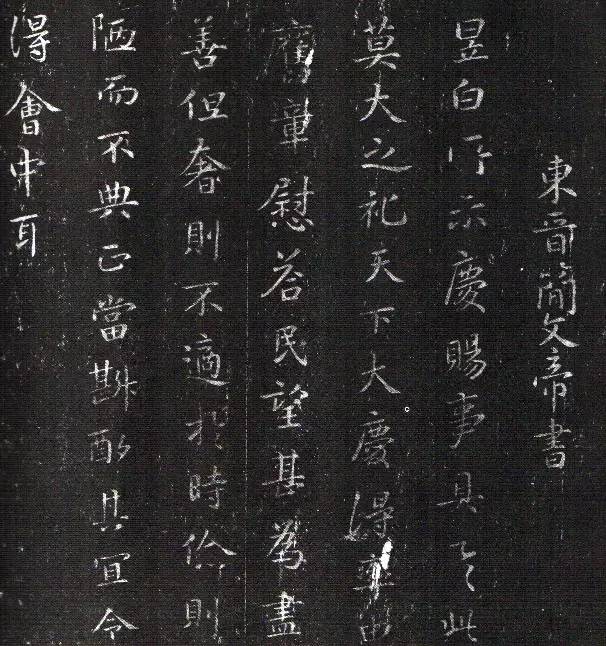 東晉簡文帝書
昱白所示慶賜事具之此
莫大之祀天下大慶得率由
舊章慰荅民望甚為盡
善但奢則不適於時儉則
陋而不典正當斟酌其宜令
得會中耳